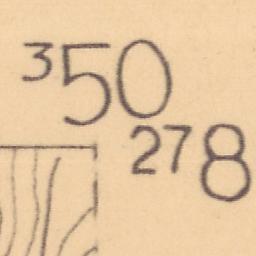 350
278